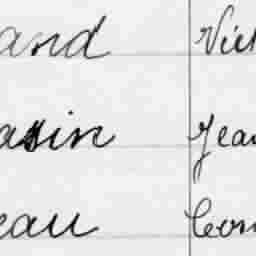 and Vict
asin Jean
eau Léon